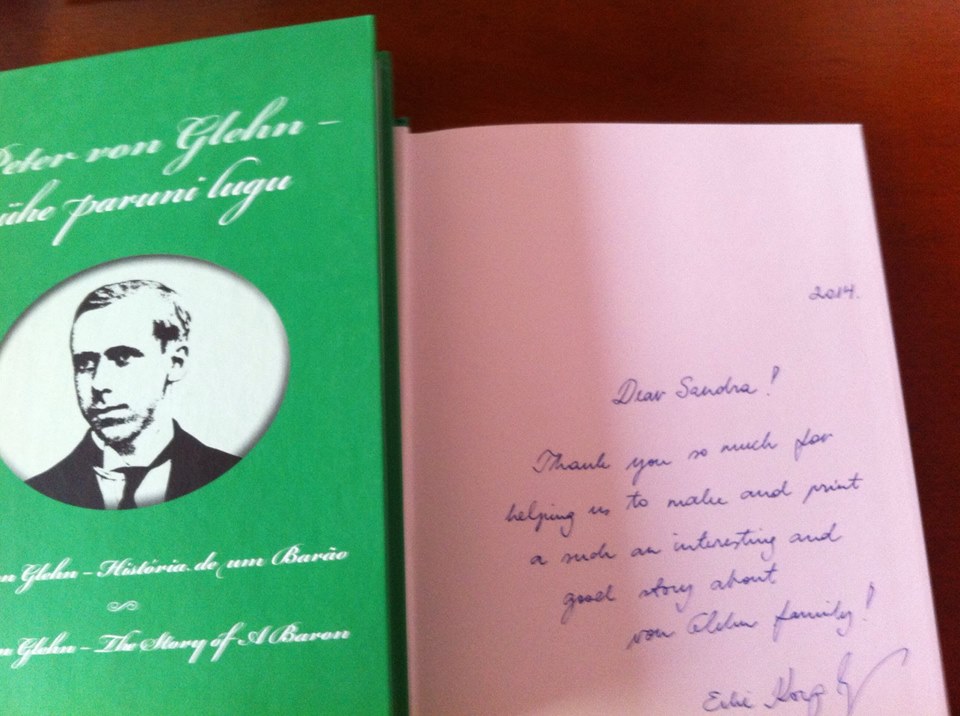 Peter von Glehn –
ühe paruni lugu
n Glehn – História de um Barão
n Glehn – The Story of A Baron
2014.
Dear Sandra!
Thank you so much for
helping us to make and print
a such an interesting and
good story about
von Glehn family!